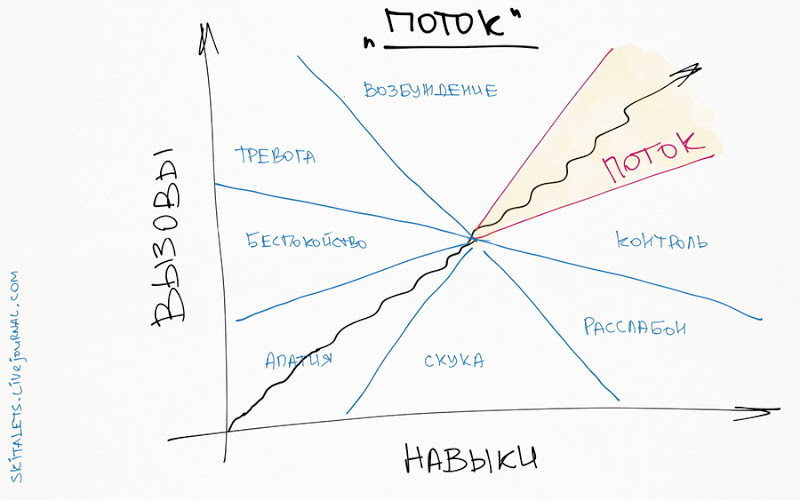 "ПОТОК"
ВОЗБУЖДЕНИЕ
ТРЕВОГА
ПОТОК
БЕСПОКОЙСТВО
КОНТРОЛЬ
РАССЛАБОН
АПАТИЯ
СКУКА
ВЫЗОВЫ
НАВЫКИ
SKITALETS.LIVEJOURNAL.COM